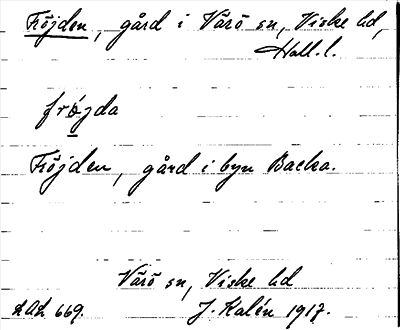 Fröjden, gård i Värö sn, Viske hd,
Hall. l.
frǫ̈jda
Fröjden, gård i byn Backa.
Värö sn, Viske hd
LAL 669. J. Kalén 1917.